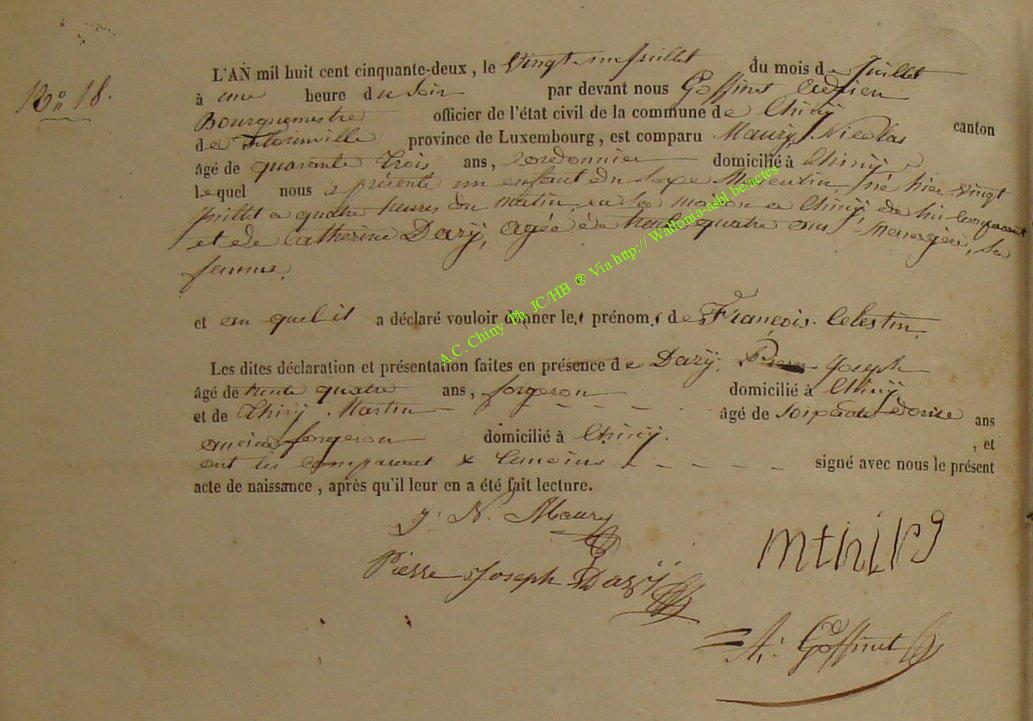 No 18.
L'AN mil huit cent cinquante-deux, le Vingt-un Juillet du mois de Juillet
à une heure du Soir par devant nous Goffinet
Bourguemestre officier de l'état civil de la commune de Chiny canton
de Florenville province de Luxembourg, est comparu Maury, Nicolas
âgé de quarante trois ans, Cordonnier domicilié à Chiny,
Lequel nous a présenté un enfant du Sexe Masculin, né hier vingt
Juillet a quatre heures du matin, en Sa maison a Chiny de lui Comparant
et de Catherine Dazÿ, Agée de trente quatre ans Menagère, Sa
femme,
et au quel il a déclaré vouloir donner les prénoms de François-Célestin,
Les dites déclaration et présentation faites en présence de Dazÿ, Pierre Joseph
âgé de trente quatre ans, forgeron domicilié à Chiny
et de Thiry Martin âgé de Soixante ans
ancien forgeron domicilié à Chiny. , et
ont les comparant & temoins signé avec nous le présent
acte de naissance, après qu'il leur en a été fait lecture.
J. N. Maury
mthiry
Pierre Joseph Dazÿ
A. Goffinet
A.C. Chiny Ph. JC/HB ® Via http:// Wallonia-asbl.be/actes